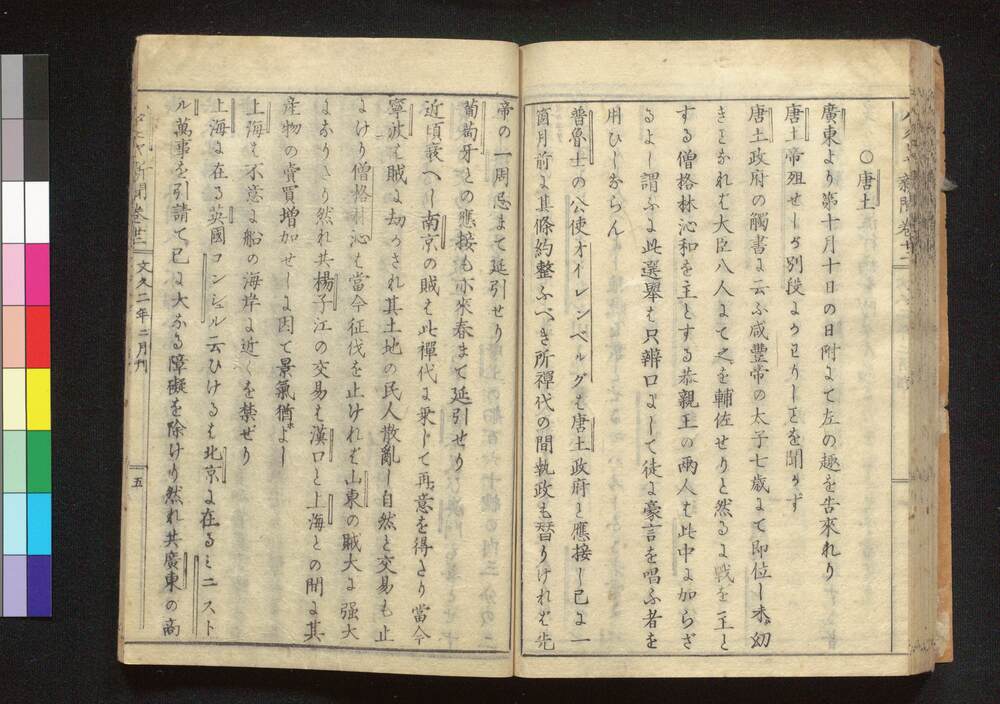 ○唐土
廣東より第十月十日の日附にて左の趣を告來れり
唐土帝殂せしゟ別段にかはりしことを聞かず
唐土政府の觸書に云ふ咸豐帝の太子七歳にて即位し未幼
きとなれば大臣八人にて之を輔佐せりと然るに戰を主と
する僧格林沁和を主とする恭親王の兩人は此中に加らざ
るよし謂ふに此選舉は只辨口にして徒に豪言を唱ふ者を
用ひしならん
普魯士の公使オイレンベルグは唐土政府と應接し已に一
箇月前に其條約整ふべき所禪代の間執政も替りければ先
帝の一周忌まで延引せり
葡萄牙との應接も亦來春まて延引せり
近頃衰へし南京の賊は此禪代に乗じて再意を得たり當今
寧波は賊に劫かされ其土地の民人散亂し自然と交易も止
にけり僧格林沁は當今征伐を止けれは山東の賊大に强大
になりたり然れ共楊子江の交易は漢口と上海との間に其
産物の賣買增加せしに因て景氣猶よし
上海は不意に船の海岸に近くを禁ぜり
上海に在る英國コンシュル云ひけるは北京に在るミニスト
ル萬事を引請て已に大なる障礙を除けり然れ共廣東の商
新聞卷廿二
文久二年二月刊
五